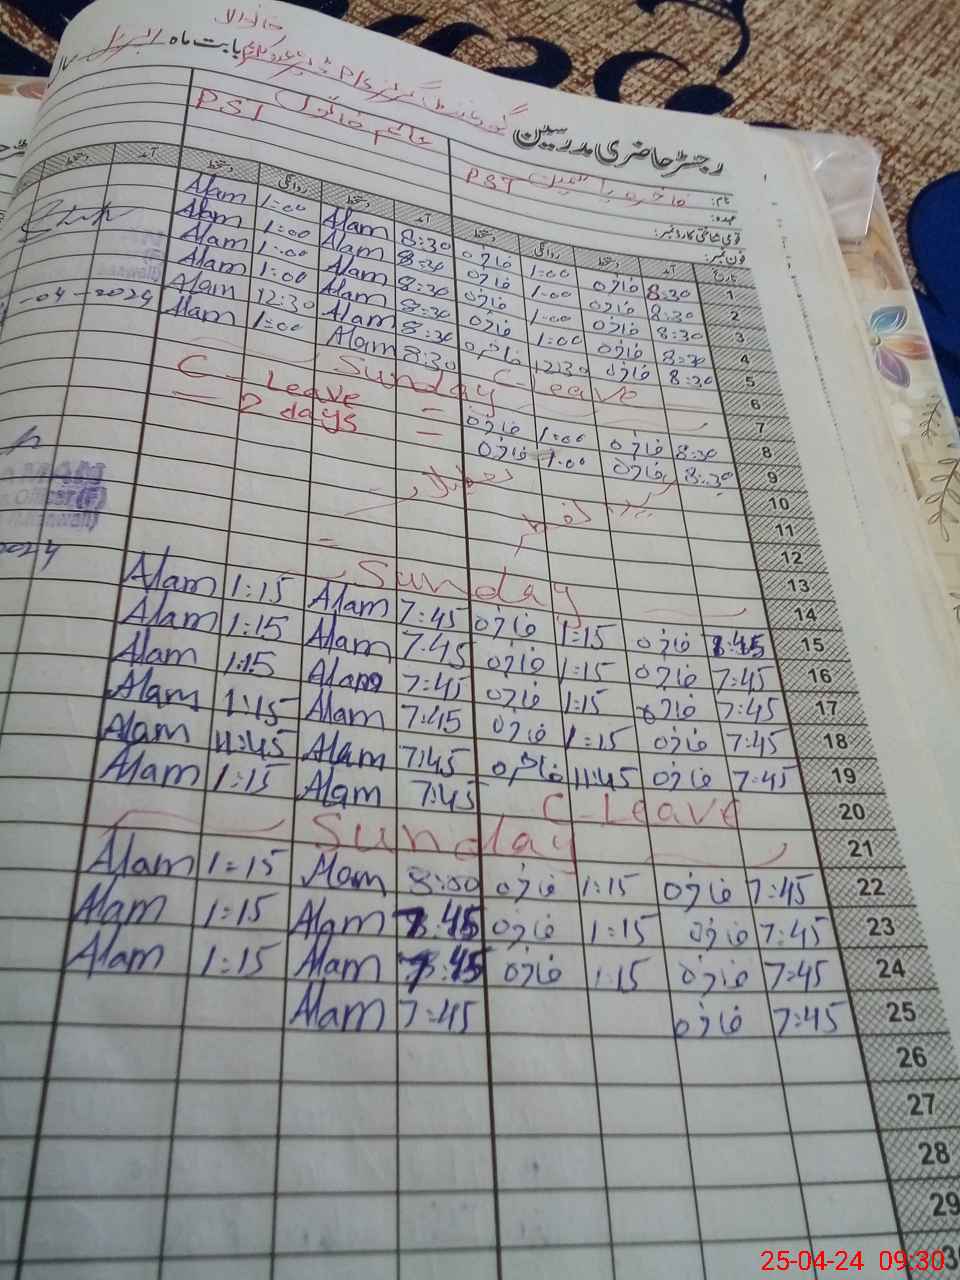 رجسٹر حاضری مدرسین بابت ماہ
نام: PST PST
عہدہ:
قومی شناختی کارڈ نمبر:
فون نمبر:
تاریخ آمد دستخط روانگی دستخط آمد دستخط روانگی دستخط آمد دستخط
1 8:30 فائزہ 1:00 فائزہ 8:30 Alam 1:00 Alam
2 8:30 فائزہ 1:00 فائزہ 8:30 Alam 1:00 Alam
3 8:30 فائزہ 1:00 فائزہ 8:30 Alam 1:00 Alam
4 8:30 فائزہ 1:00 فائزہ 8:30 Alam 1:00 Alam
5 8:30 فائزہ 12:30 فائزہ 8:30 Alam 12:30 Alam
6 C-Leave 8:30 Alam 1:00 Alam
7 Sunday
8 8:30 فائزہ 1:00 فائزہ = C-Leave
9 8:30 فائزہ 1:00 فائزہ = 2 days
10
11
12
13
14 Sunday
15 7:45 فائزہ 1:15 فائزہ 7:45 Alam 1:15 Alam
16 7:45 فائزہ 1:15 فائزہ 7:45 Alam 1:15 Alam
17 7:45 فائزہ 1:15 فائزہ 7:45 Alam 1:15 Alam
18 7:45 فائزہ 1:15 فائزہ 7:45 Alam 1:15 Alam
19 7:45 فائزہ 11:45 فائزہ 7:45 Alam 11:45 Alam
20 C-Leave 7:45 Alam 1:15 Alam
21 Sunday
22 7:45 فائزہ 1:15 فائزہ 8:00 Alam 1:15 Alam
23 7:45 فائزہ 1:15 فائزہ 7:45 Alam 1:15 Alam
24 7:45 فائزہ 1:15 فائزہ 7:45 Alam 1:15 Alam
25 7:45 فائزہ 7:45 Alam
26
27
28
29
-04-2024
25-04-24 09:30